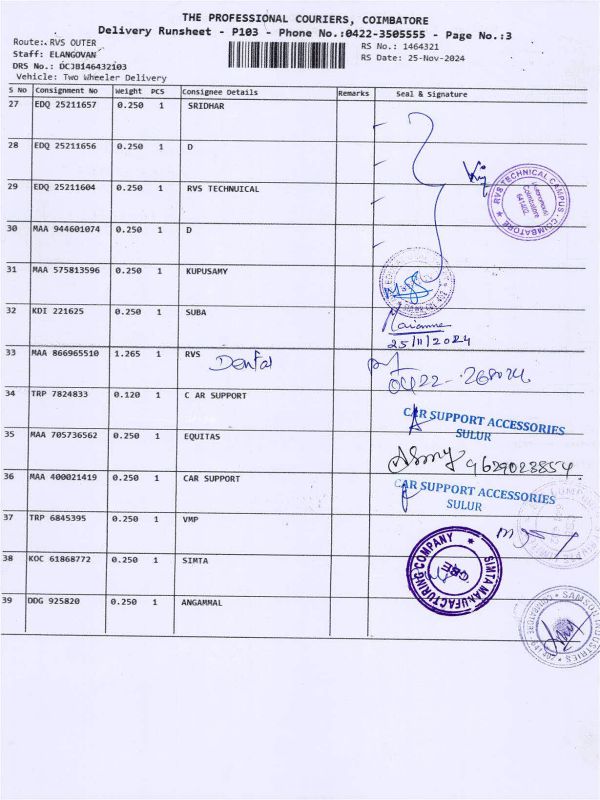 THE PROFESSIONAL COURIERS, COIMBATORE
Delivery Runsheet - P103 - Phone No.:0422-3505555 - Page No.:3
Route: RVS OUTER
RS No.: 1464321
Staff: ELANGOVAN
RS Date: 25-Nov-2024
DRS No.: DCJB146432103
Vehicle: Two Wheeler Delivery
S No Consignment No Weight PCS Consignee Details Remarks Seal & Signature
27 EDQ 25211657 0.250 1 SRIDHAR
28 EDQ 25211656 0.250 1 D
29 EDQ 25211604 0.250 1 RVS TECHNUICAL
RVS TECHNICAL CAMPUS, COIMBATORE ★
Autonomous
Coimbatore
641402
30 MAA 944601074 0.250 1 D
31 MAA 575813596 0.250 1 KUPUSAMY
32 KDI 221625 0.250 1 SUBA
25/11/2024
33 MAA 866965510 1.265 1 RVS Dental
34 TRP 7824833 0.120 1 C AR SUPPORT
CAR SUPPORT ACCESSORIES
SULUR
35 MAA 705736562 0.250 1 EQUITAS
9629028854
36 MAA 400021419 0.250 1 CAR SUPPORT
CAR SUPPORT ACCESSORIES
SULUR
37 TRP 6845395 0.250 1 VMP
38 KOC 61868772 0.250 1 SIMTA
SIMTA MANUFACTURING COMPANY ★
CBE
39 DDG 925820 0.250 1 ANGAMMAL